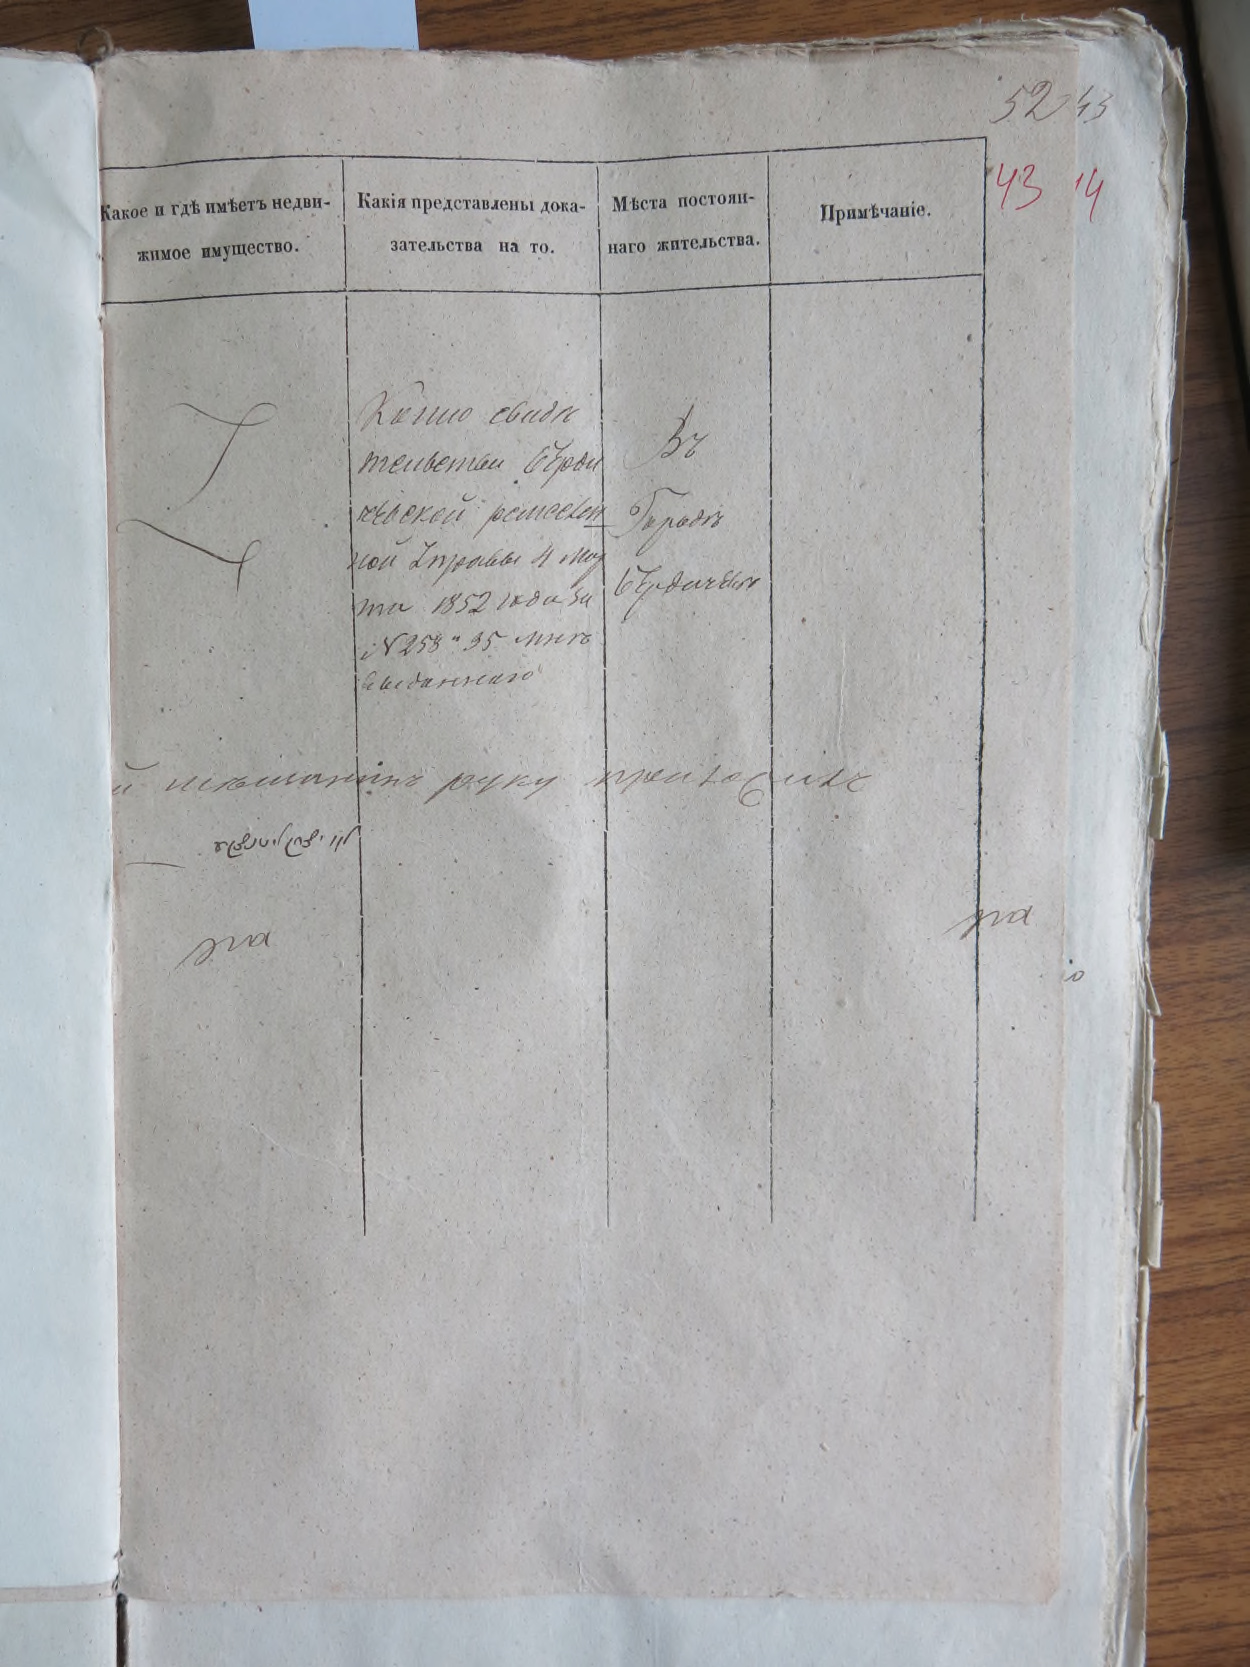 52 43
43 14
Какое и гдѣ имѣетъ недви-
жимое имущество.
Какія представлены дока-
зательства на то.
Мѣста постоян-
наго жительства.
Примѣчаніе.
Копію свидѣ
тельства Берди
чевской ремеслен
ной Управы 4 мар
та 1852 года за
№ 258 и 35 мнѣ
выданнаго
Въ
Городѣ
Бердичевѣ
й мѣщанинъ руку приложилъ